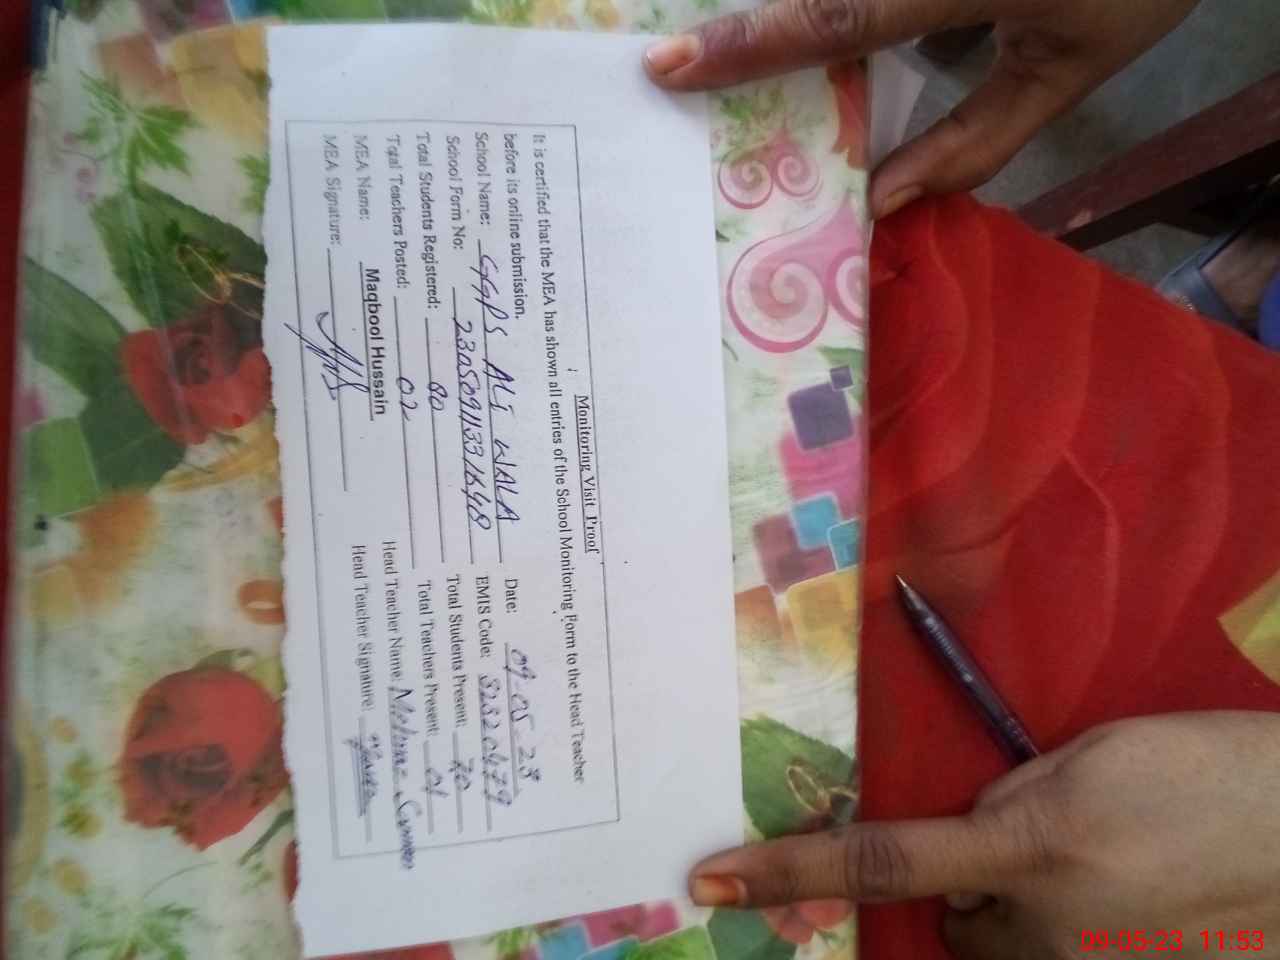 Monitoring Visit Proof
It is certified that the MEA has shown all entries of the School Monitoring Form to the Head Teacher
before its online submission.
School Name: GGPS ALI WALA Date: 09-05-23
School Form No: 23050911331648 EMIS Code: 32320479
Total Students Registered: 80 Total Students Present: 70
Total Teachers Posted: 02 Total Teachers Present: 01
MEA Name: Maqbool Hussain Head Teacher Name:
MEA Signature: Head Teacher Signature:
09-05-23 11:53